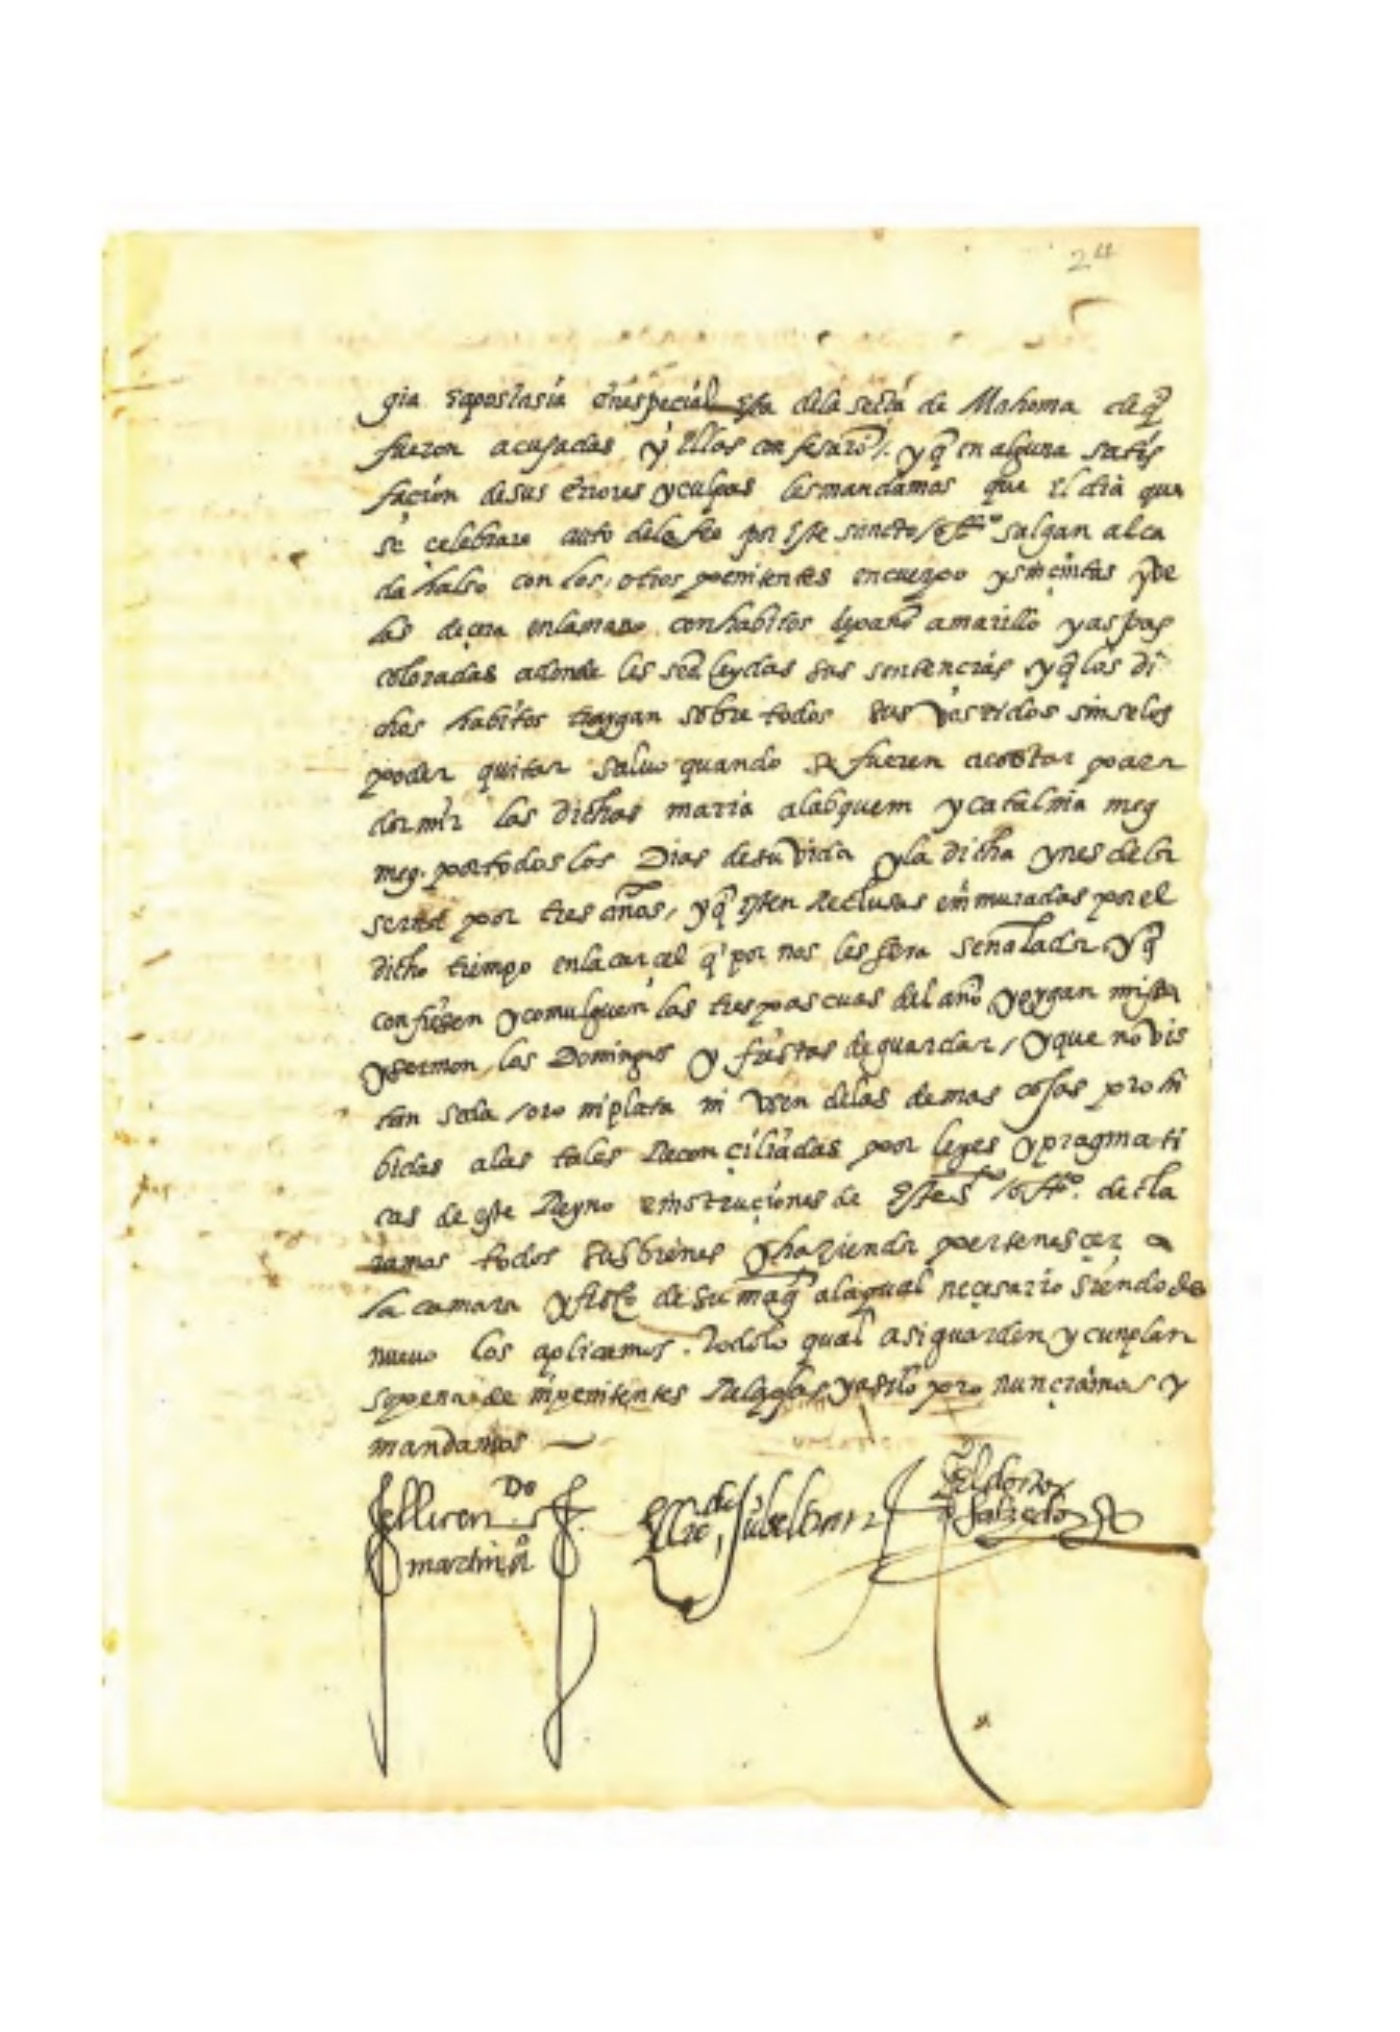 24
gia Eapostasia Enespecial Esta dela secta de Mahoma de q̃
fueron acusadas y Ellas confesarõ/. yq̃ en alguna satis
facion desus Errores yculpas lesmandamos que El dia que
se celebrare auto dela fee por Este sancto/offº salgan alca
dahalso con los, otros penitentes encuerpo ysincintas yve
las deçera enlamano conhabitos depaño amarillo yaspas
coloradas adonde les sea leydas sus sentencias yq̃ los di
chos habitos traygan sobre todos sus vestidos sinselos
poder quitar saluo quando se fueren acostar poder
dormir las dichas maria alabquem ycatalina meg
meg. portodos los Dias desu vida yla dicha ynes dela
serna por tres años, yq̃ Esten Reclusas emmuradas por el
dicho tiempo enlacarcel q̃ por nos les sera señalada yq̃
confiesen ycomulguen las trespascuas del año yoygan missa
ysermon, los Domingos y fiestas deguardar, yque no vis
tan seda /oro niplata ni vsen delas demas cosas prohi
bidas alas tales Reconçiliadas por leyes ypragmati
cas de este Reyno einstruçiones de Este Sto /offº. decla
ramos todos susbienes yhazienda pertenesçer a
la camara yfisco de su magd alaqual neçesario siendo de
nueuo los aplicamos. Todolo qual asiguarden y cunplan
sopena de inpenitentes Relapsas yasilo pronunciamos y
mandamos
El liçendo
martin
El doctor
salzedo